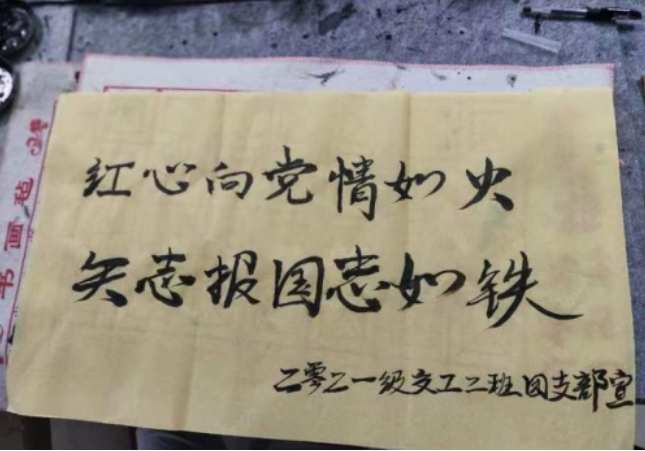 红心向党情如火
矢志报国志如铁
二零二一级交工二班团支部宣
书画毡